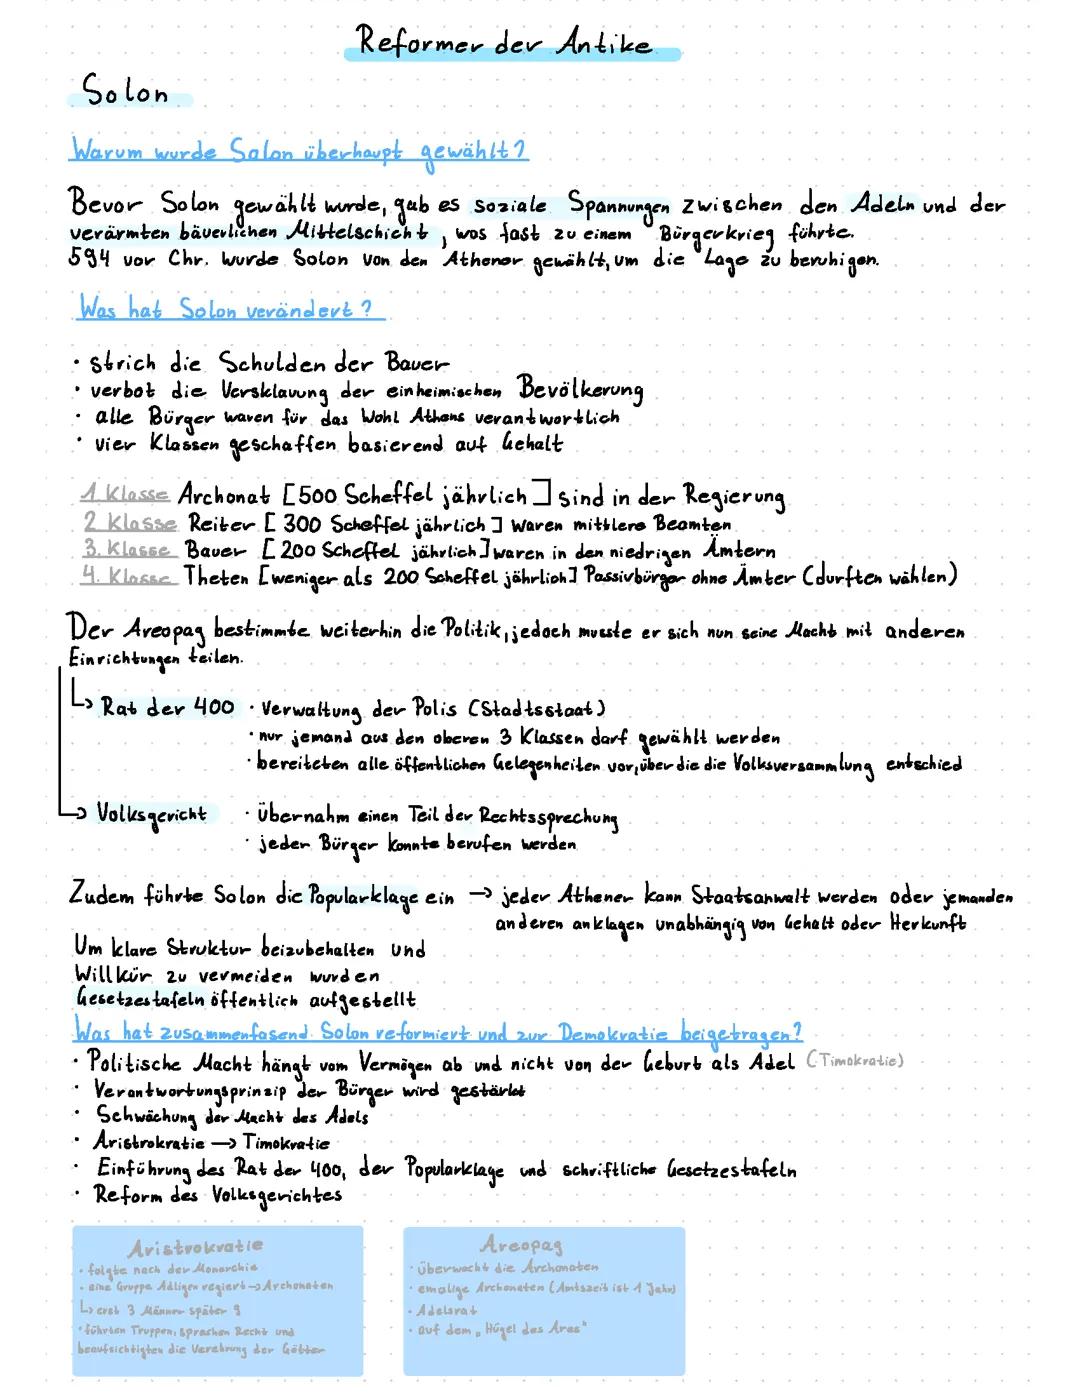 Reformer der Antike
Solon
Warum wurde Solon überhaupt gewählt?
Bevor Solon gewählt wurde, gab es soziale Spannungen zwischen den Adeln und der
verärmten bäuerlichen Mittelschicht, was fast zu einem Bürgerkrieg führte.
594 vor Chr. wurde Solon von den Athener gewählt, um die Lage zu beruhigen.
Was hat Solon verändert?
· strich die Schulden der Bauer
· verbot die Versklavung der einheimischen Bevölkerung
· alle Bürger waren für das Wohl Athens verantwortlich
· vier Klassen geschaffen basierend auf Gehalt
1. Klasse Archonat [500 Scheffel jährlich] sind in der Regierung
2 Klasse Reiter [300 Scheffel jährlich] waren mittlere Beamten
3. Klasse Bauer [200 Scheffel jährlich] waren in den niedrigen Ämtern
4. Klasse Theten [weniger als 200 Scheffel jährlich] Passivbürger ohne Ämter (durften wählen)
Der Areopag bestimmte weiterhin die Politik, jedoch musste er sich nun seine Macht mit anderen
Einrichtungen teilen.
↳ Rat der 400 · Verwaltung der Polis (Stadtsstaat)
· nur jemand aus den oberen 3 Klassen darf gewählt werden
· bereiteten alle öffentlichen Gelegenheiten vor, über die die Volksversammlung entschied
↳ Volksgericht · übernahm einen Teil der Rechtssprechung
· jeder Bürger konnte berufen werden
Zudem führte Solon die Popularklage ein → jeder Athener kann Staatsanwalt werden oder jemanden
anderen anklagen unabhängig von Gehalt oder Herkunft
Um klare Struktur beizubehalten und
Willkür zu vermeiden wurden
Gesetzestafeln öffentlich aufgestellt
Was hat zusammenfasend Solon reformiert und zur Demokratie beigetragen?
· Politische Macht hängt vom Vermögen ab und nicht von der Geburt als Adel (Timokratie)
· Verantwortungsprinzip der Bürger wird gestärkt
· Schwächung der Macht des Adels
· Aristrokratie → Timokratie
· Einführung des Rat der 400, der Popularklage und schriftliche Gesetzestafeln
· Reform des Volksgerichtes
Aristrokratie
· folgte nach der Monarchie
· eine Gruppe Adligen regiert → Archonaten
↳ erst 3 Männer später 9
· führten Truppen, sprachen Recht und
beaufsichtigten die Verehrung der Götter
Areopag
· überwacht die Archonaten
· emalige Archonaten (Amtszeit ist 1 Jahr)
· Adelsrat
· auf dem „Hügel des Ares"